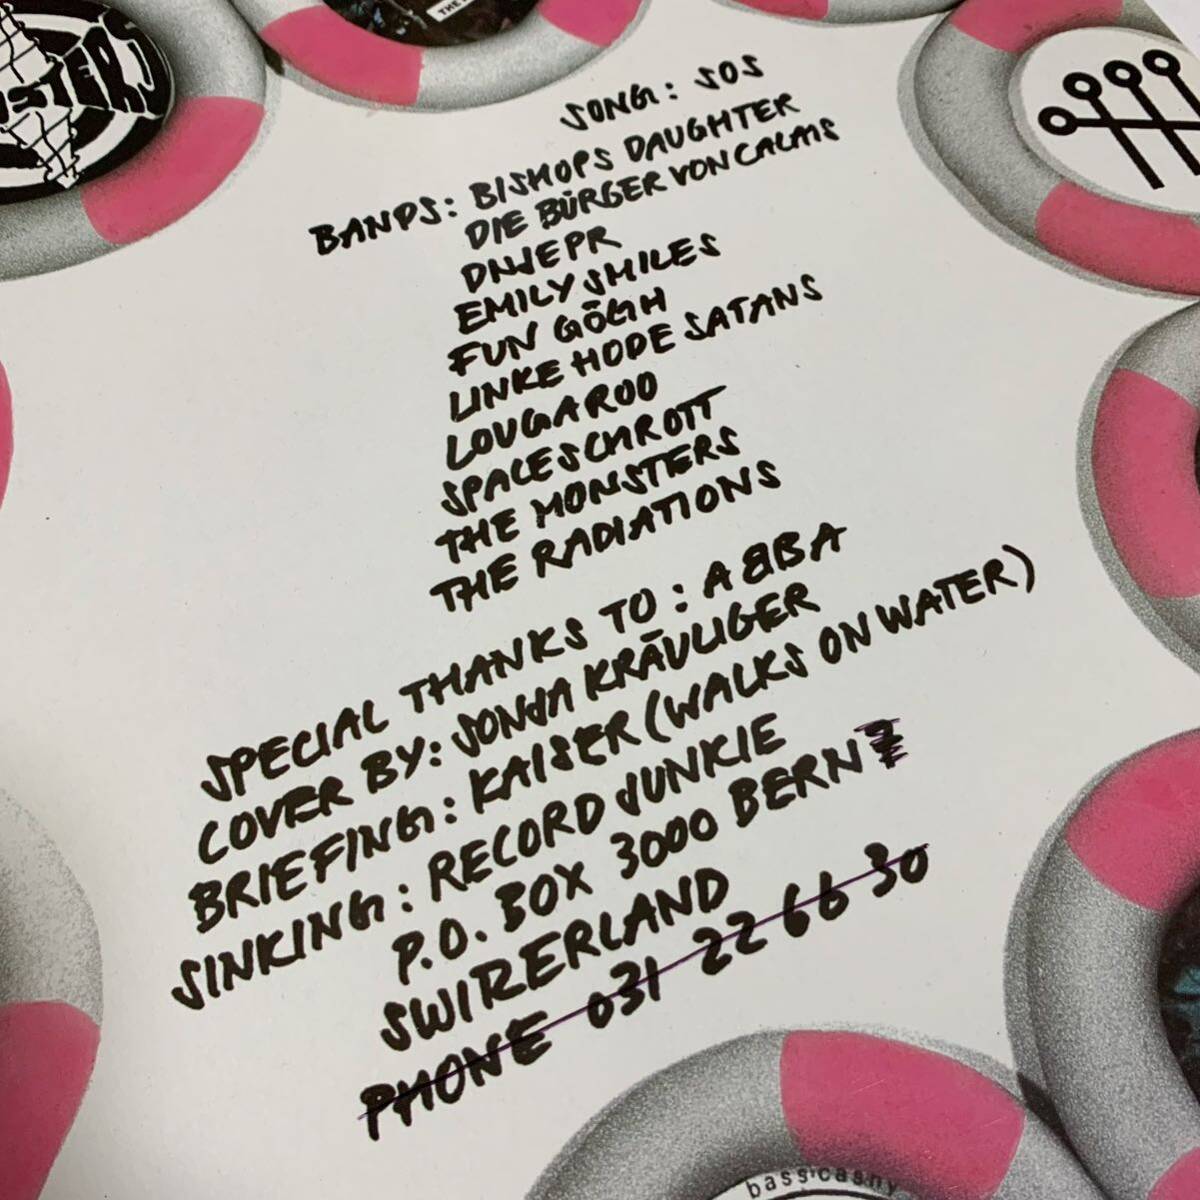 SONG: SOS
BANDS: BISHOPS DAUGHTER
DIE BÜRGER VON CALAIS
DNJEPR
EMILY SMILES
FUN GÖGH
LINKE HODE SATANS
LOUGAROO
SPACESCHROTT
THE MONSTERS
THE RADIATIONS
SPECIAL THANKS TO: ABBA
COVER BY: SONJA KRÄULIGER
BRIEFING: KAISER (WALKS ON WATER)
SINKING: RECORD JUNKIE
P.O. BOX 3000 BERN
SWIRERLAND
PHONE 031 22 66 30
bass•casny